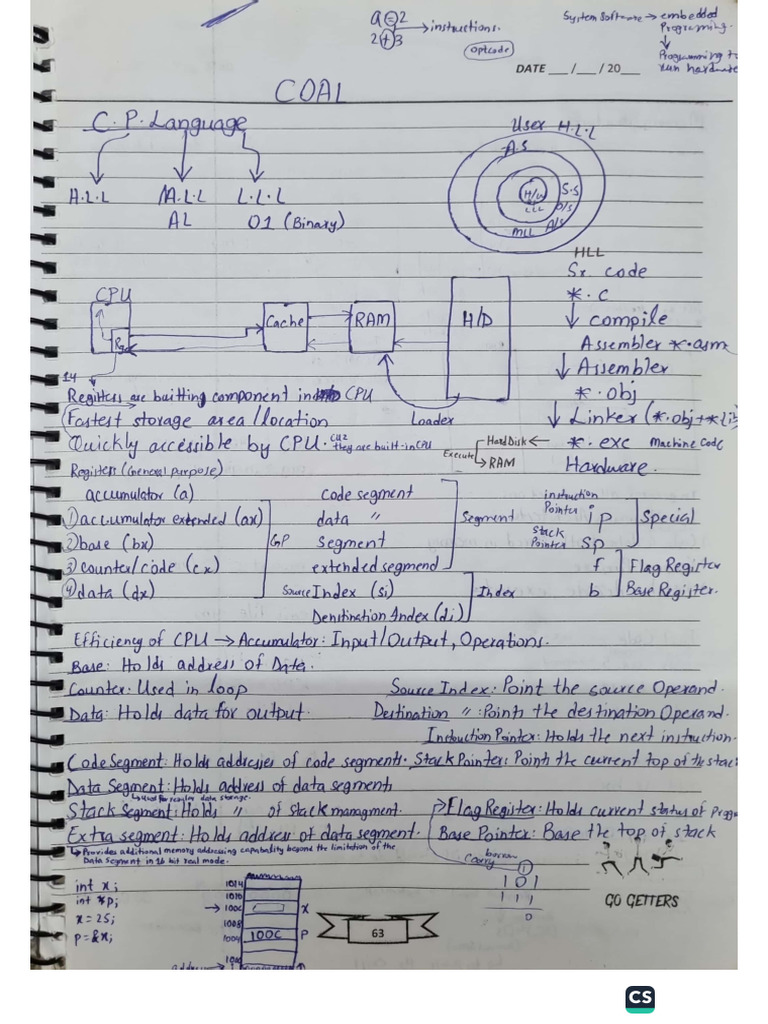 a = 2
2 + 3 → instructions.
Optcode
System Software → embedded
Programing.
↓
Programming to
run hardware
DATE ___/___/20___
COAL
C.P. Language
H.L.L M.L.L L.L.L
AL 01 (Binary)
User H.L.L
A.S
S.S
H/W
LLL
O/S
A/S
MLL
HLL
Sr. code
*.c
↓ compile
Assembler *.asm
↓ Assembler
*.obj
↓ Linker (*.obj + *.li
*.exc Machine Code
Hardware.
CPU
Rg
Cache
RAM
H/D
Loader
Execute
HardDisk ←
→ RAM
14
Registers are buitting component in CPU
Fastest storage area/location
Quickly accessible by CPU. cuz they are built-in CPU
Registers (General purpose)
accumulator (a)
1) accumulator extended (ax)
2) base (bx)
3) counter/code (cx)
4) data (dx)
GP
code segment
data "
segment
extended segmend
Segment
Source Index (si)
Denstination Index (di)
Index
instruction Pointer ip
Stack Pointer sp
Special
f Flag Register
b Base Register.
Efficiency of CPU → Accumulator: Input/Output, Operations.
Base: Holds address of Data.
Counter: Used in loop
Source Index: Point the source Operand.
Data: Holds data for output.
Destination " : Points the destination Operand.
Instruction Pointer: Holds the next instruction.
Code Segment: Holds addresses of code segments. Stack Pointer: Point the current top of the stac
Data Segment: Holds address of data segments
↳ Used for regular data storage.
Stack Segment: Holds " of stack managment.
→ Flag Register: Holds current status of Progra
Extra segment: Holds address of data segment.
Base Pointer: Base the top of stack
↳ Provides additional memory addressing capability beyond the limitation of the
Data Segment in 16 bit real mode.
int x;
int *p;
x = 25;
p = &x;
1014
1010
→ 100C x
1008
1004 100C P
1000
address
Carry
1
1 0 1
1 1 1
0
63
GO GETTERS
CS